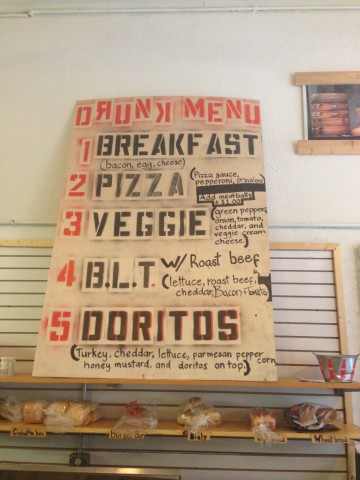 DRUNK MENU
1 BREAKFAST
(bacon, egg, cheese)
2 PIZZA (Pizza sauce, pepperoni, provolone)
Add meatballs
+ $1.00
3 VEGGIE (green pepper, onion, tomato, cheddar, and veggie cream cheese)
4 B.L.T. w/ Roast beef
(lettuce, roast beef, cheddar, Bacon + Tomato)
5 DORITOS
(Turkey, cheddar, lettuce, parmesan pepper corn
honey mustard, and doritos on top.)
Bialy
Wheat bread